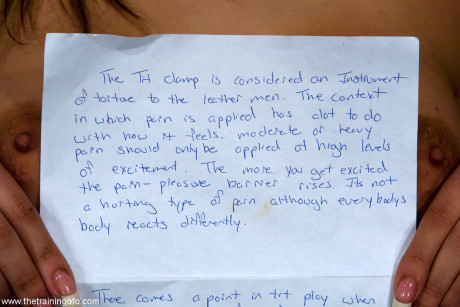 The TH clamp is considered an Instrument
of tortue to the leather men. The context
in which pain is applied has alot to do
with how it feels. moderate or heavy
pain should only be applied at high levels
of excitement. The more you get excited
the pain-pleasure barrier rises. Its not
a hurting type of pain although everybodys
body reacts differently.
There comes a point in tit play when
www.thetrainingofo.com